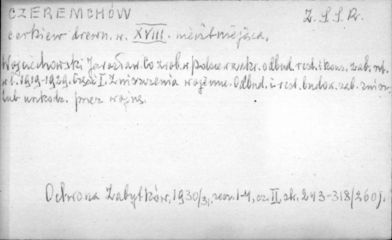 CZEREMCHÓW
Z.S.S.R.
cerkiew drewn. w. XVIII. nieistniejąca.
Wojciechowski Jarosław. Co zrob. w Polsce w zakr. odbud. rest. i kons. zab. arch.
w l. 1919-1929. Część I. Zniszczenia wojenne. Odbud. i rest. budow. zab. zniszcz.
lub uszkodz. przez wojnę.
Ochrona Zabytków, 1930/31, zesz. 1-4, cz. II, str. 243-318/260/.